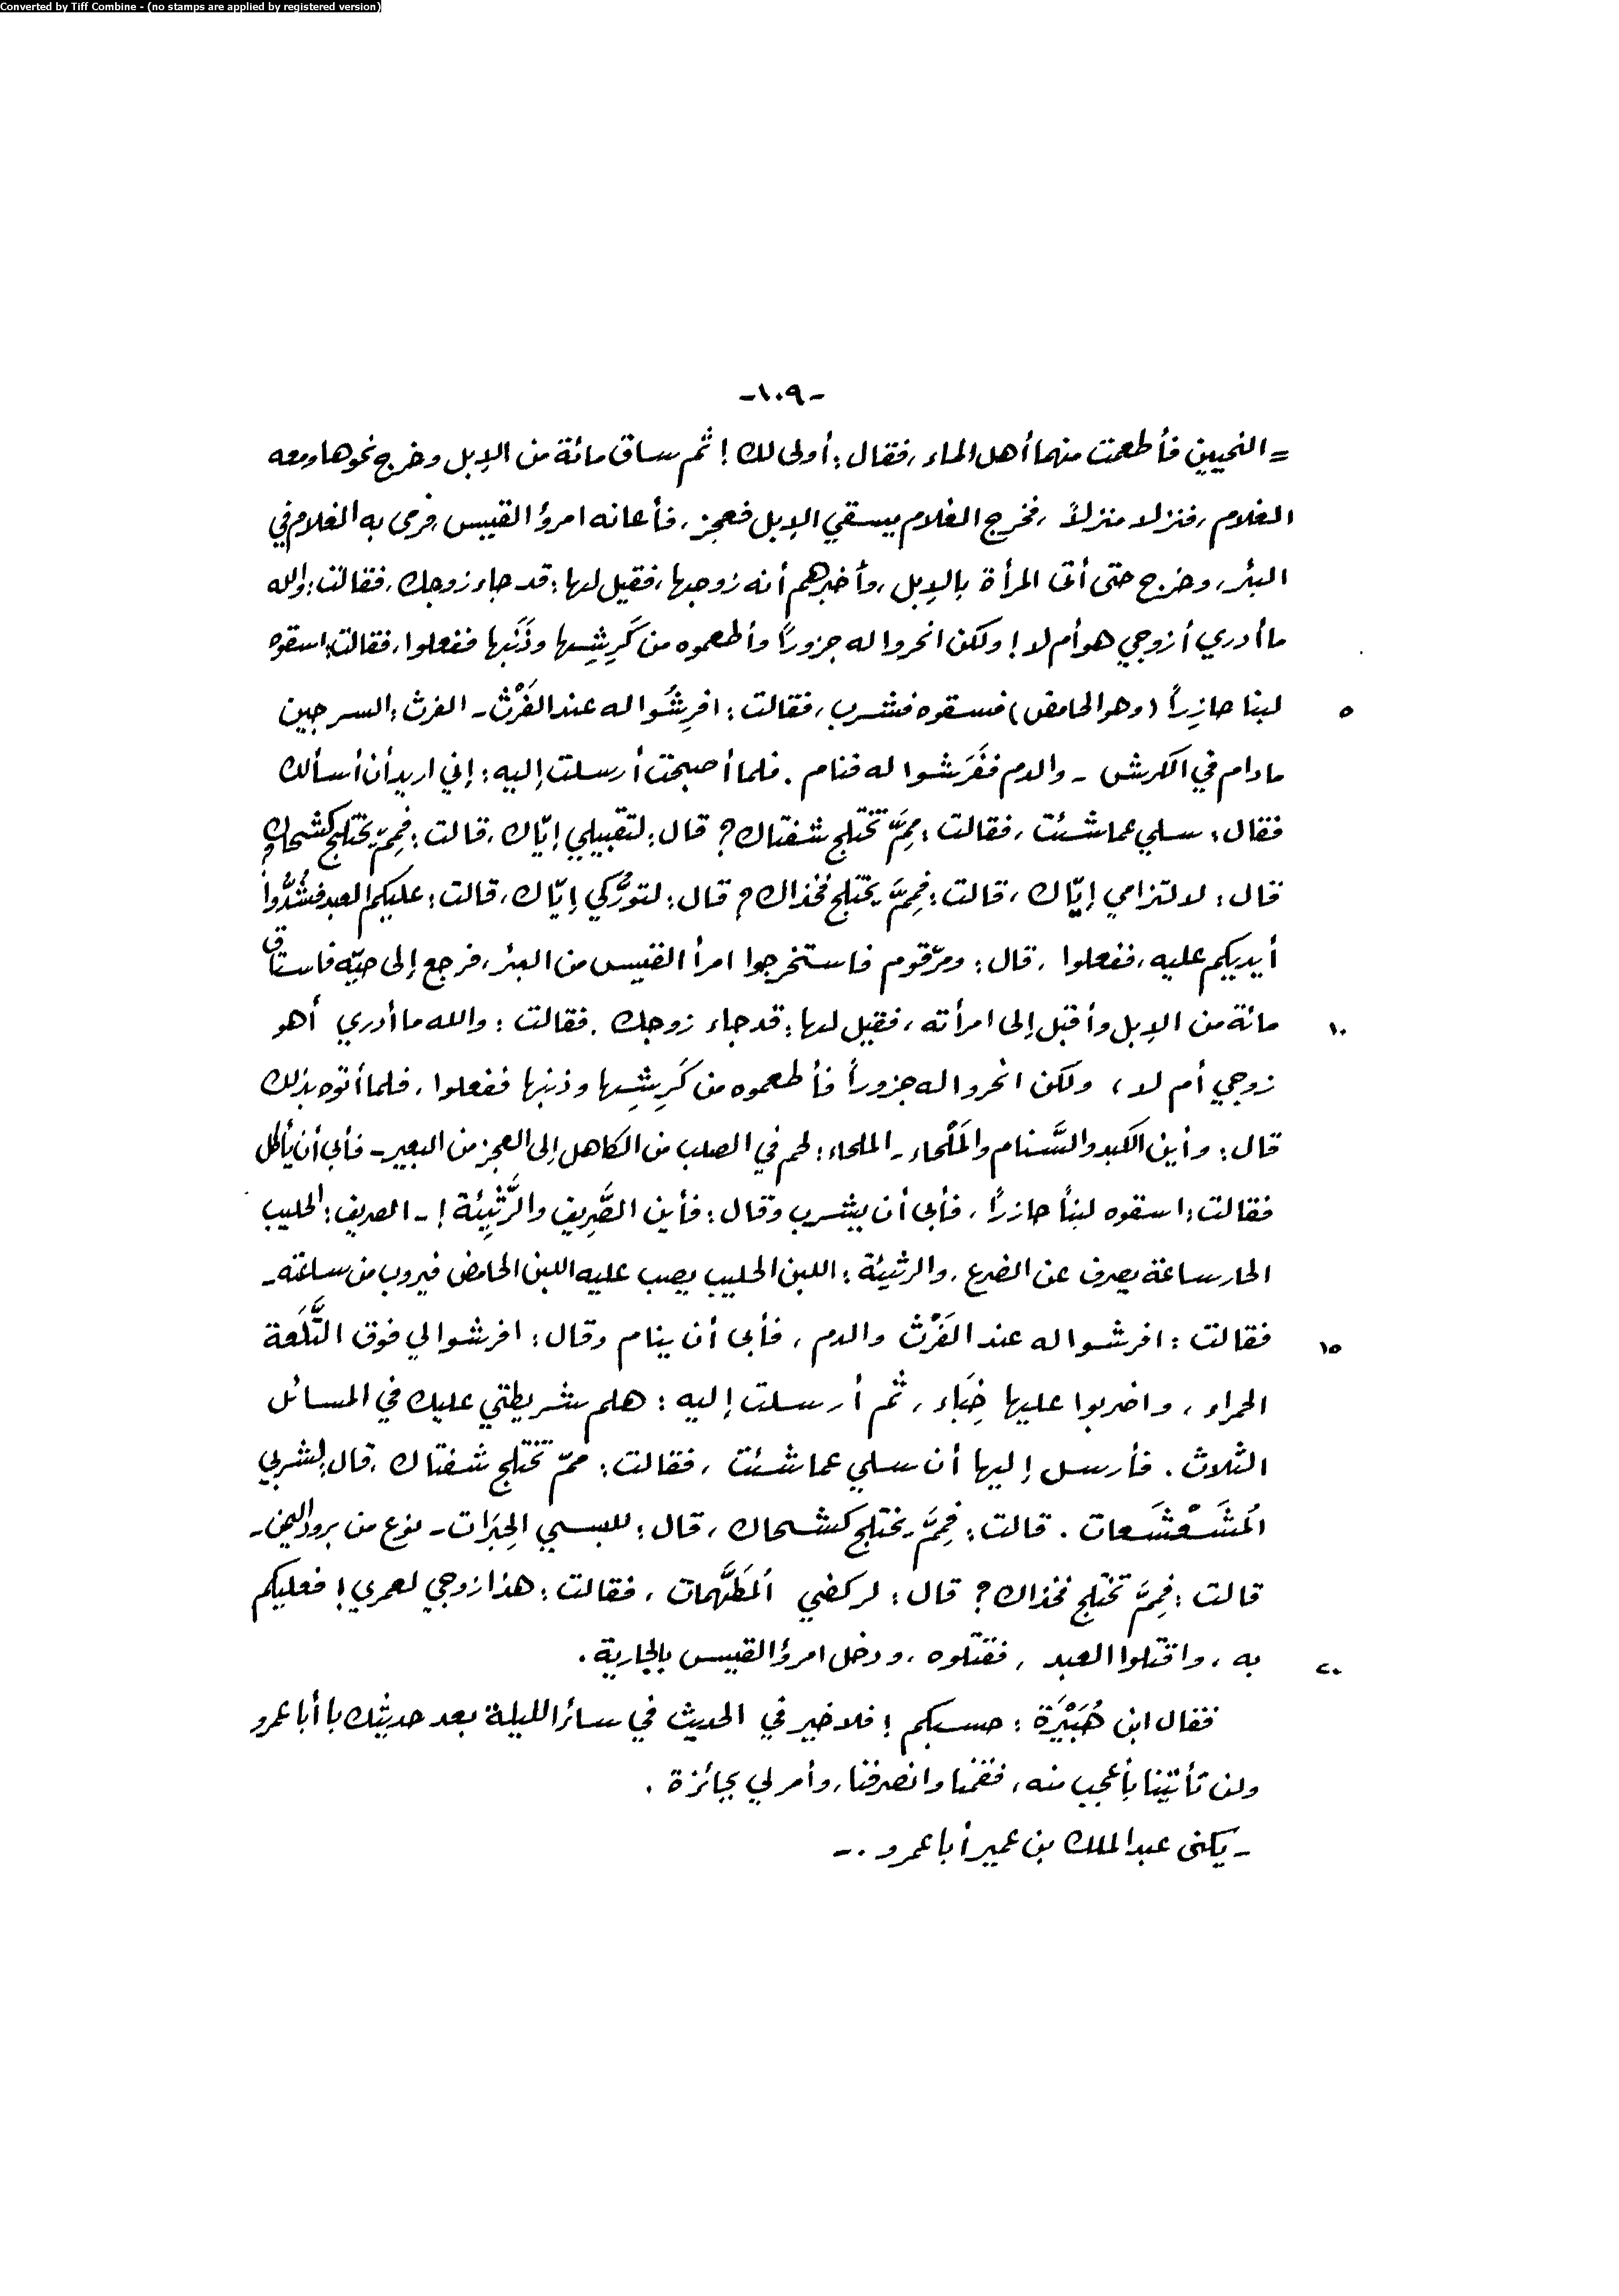 Converted by Tiff Combine - (no stamps are applied by registered version)
-١٠٩-
= النحيين فأطعمت منهما أهل الماء، فقال: أولى لك! ثم ساق مائة من الإبل وخرج نحوها ومعه
الغلام، فنزلا منزلاً، فخرج الغلام يسقي الإبل فعجز، فأعانه امرؤ القيس، فرمى به الغلام في
البئر، وخرج حتى أتى المرأة بالإبل، وأخبرهم أنه زوجها، فقيل لها: قد جاء زوجك، فقالت: والله
ما أدري أزوجي هو أم لا! ولكن انحروا له جزوراً وأطعموه من كَرِشِها وذَنَبها ففعلوا، فقالت: اسقوه
٥ لبنا حازِراً (وهو الحامض) فسقوه فشرب، فقالت: افرِشُوا له عند الفَرْث ـ الفرث: السرجين
مادام في الكرش ـ والدم ففَرَشوا له فنام. فلما أصبحت أرسلت إليه: إني اريد أن أسألك
فقال: سلي عما شئت، فقالت: مِمَّ تختلج شفتاك؟ قال: لتقبيلي إيّاك، قالت: فمِمّ يختلج كشحاك؟
قال: لالتزامي إيّاك، قالت: فمِمَّ يختلج فخذاك؟ قال: لتورُّكي إيّاك، قالت: عليكم العبد فشُدُّوا
أيديكم عليه، ففعلوا، قال: ومرّ قوم فاستخرجوا امرأ القيس من البئر، فرجع إلى حيّه فاستاق
١٠ مائة من الإبل وأقبل إلى امرأته، فقيل لها: قد جاء زوجك. فقالت: والله ما أدري أهو
زوجي أم لا، ولكن انحروا له جزوراً فأطعموه من كَرِشِها وذنبها ففعلوا، فلما أتوه بذلك
قال: وأين الكبد والسَّنام والمَلْحاء ـ الملحاء: لحم في الصلب من الكاهل إلى العجز من البعير ـ فأبى أن يأكل
فقالت: اسقوه لبناً حازراً، فأبى أن يشرب وقال: فأين الصَّرِيف والرَّثِيئَة! ـ الصريف: الحليب
الحار ساعة يصرف عن الضرع، والرثيئة: اللبن الحليب يصب عليه اللبن الحامض فيروب من ساعته ـ
١٥ فقالت: افرشوا له عند الفَرْث والدم، فأبى أن ينام وقال: افرشوا لي فوق التَّلَعة
الحمراء، واضربوا عليها خِبَاء، ثم أرسلت إليه: هلم شريطتي عليك في المسائل
الثلاث. فأرسل إليها أن سلي عما شئت، فقالت: ممّ تختلج شفتاك، قال: لشربي
المُشَعْشَعات. قالت: فمِمَّ يختلج كشحاك، قال: للبسي الحِبَرَات ـ نوع من برود اليمن ـ
قالت: فمِمَّ تختلج فخذاك؟ قال: لركضي المُطَهَّمات، فقالت: هذا زوجي لعمري! فعليكم
٢٠ به، واقتلوا العبد، فقتلوه، ودخل امرؤ القيس بالجارية.
فقال ابن هُبَيْرَة: حسبكم! فلا خير في الحديث في سائر الليلة بعد حديثك يا أبا عمرو
ولن تأتينا بأعجب منه، فقمنا وانصرفنا، وأمر لي بجائزة.
ـ يكنى عبد الملك بن عمير أبا عمرو. ـ